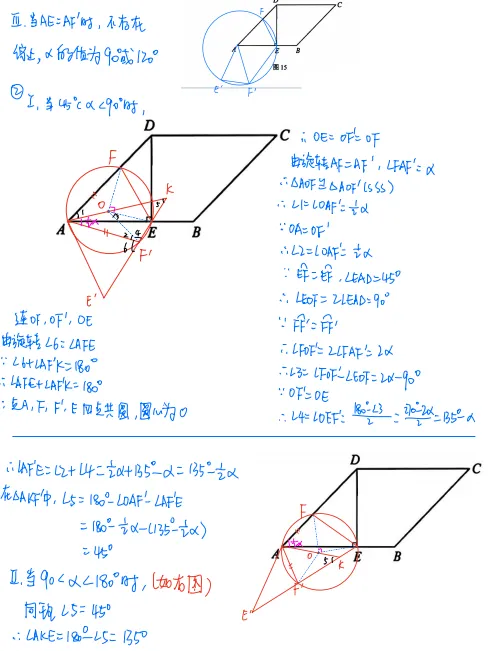 Ⅲ.当AE=AF'时,不存在
综上,α的值为90°或120°
D
C
F
A
E
B
E'
F'
图15
② Ⅰ.当45°<α<90°时,
D
C
F
K
O
A
E
B
F'
E'
连OF,OF',OE
由旋转∠6=∠AFE
∵∠6+∠AF'K=180°
∴∠AFE+∠AF'K=180°
∴点A,F,F',E四点共圆,圆心为O
∴OE=OF'=OF
由旋转AF=AF',∠FAF'=α
∴△AOF≌△AOF'(SSS)
∴∠1=∠OAF'=½α
∵OA=OF'
∴∠2=∠OAF'=½α
∵EF=EF,∠EAD=45°
∴∠EOF=2∠EAD=90°
∵FF'=FF'
∴∠FOF'=2∠FAF'=2α
∴∠3=∠FOF'-∠EOF=2α-90°
∵OF'=OE
∴∠4=∠OEF'=(180°-∠3)/2=(270°-2α)/2=135°-α
∴∠AF'E=∠2+∠4=½α+135°-α=135°-½α
在△AKF'中,∠5=180°-∠OAF'-∠AF'E
=180°-½α-(135°-½α)
=45°
Ⅱ.当90<α<180°时,(如右图)
同理∠5=45°
∴∠AKE=180°-∠5=135°
D
C
F
A
E
B
O
K
F'
E'